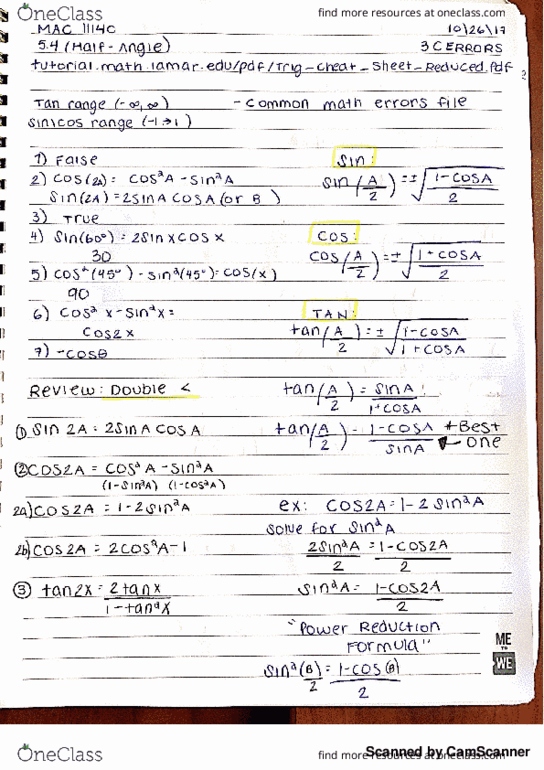 OneClass
find more resources at oneclass.com
MAC 1114C 10/26/17
5.4 (Half-Angle) 3 CERRORS
tutorial.math.lamar.edu/pdf/Trig_Cheat_Sheet_Reduced.pdf
Tan range (-∞,∞) - common math errors file
sin/cos range (-1→1)
1) False
2) COS(2A) = COS²A - Sin²A
Sin(2A) = 2SinA COSA (or B )
3) True
4) Sin(60°) = 2Sin X COS X
30
5) COS²(45°) - sin²(45°) = COS(x)
90
6) COS² X - Sin²X =
COS2X
7) -COSθ
Sin:
sin(A/2) = ±√(1-COSA/2)
COS:
COS(A/2) = ±√(1+COSA/2)
TAN:
tan(A/2) = ±√(1-COSA/1+COSA)
tan(A/2) = SinA/1+COSA
tan(A/2) = 1-COSA/SinA *Best one
Review: Double <
① Sin 2A = 2Sin A COS A
② COS2A = COS²A - Sin²A
(1-Sin²A) (1-COS²A)
2a) COS2A = 1-2Sin²A
2b) COS2A = 2COS²A-1
③ tan2X = 2tanx/1-tan²X
ex: COS2A = 1-2 Sin²A
solve for Sin²A
2Sin²A/2 = 1-COS2A/2
Sin²A = 1-COS2A/2
"Power Reduction
Formula"
Sin²(B)/2 = 1-COS(B)/2
ME
TO
WE
OneClass
find more resources at oneclass.com
Scanned by CamScanner